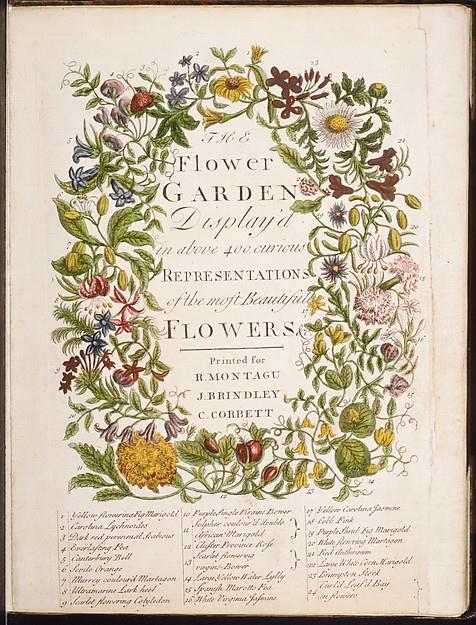 THE
Flower
GARDEN
Display'd
in above 400 curious
REPRESENTATIONS
of the most Beautiful
FLOWERS,
Printed for
R. MONTAGU
J. BRINDLEY
C. CORBETT
1 Yellow flowering Fig Marigold
2 Carolina Lychnoides
3 Dark red perennial
4 Everlasting Pea
5 Canterbury Bell
6 Sevile Orange
7 Murrey coulour'd Martagon
8 Ultramarine Lark heel
9 Scarlet flowering Cotyledon
10 Purple Single Virgins Bower
11 Sulpher coulour'd double
African Marigold
12 Cluster Province Rose
13 Scarlet flowering
virgins-Bower
14 Large Yellow Water Lylly
15 Spanish Marotto Pea
16 White Virginia Jasmine
17 Yellow Carolina Jasmine
18 Cobb Pink
19 Purple Shrub Fig Marigold
20 White flowring Martagon
21 Red
22 Large White Corn Marigold
23 Brumpton Stock
24 Curl'd Leaf'd Bay
in flowers